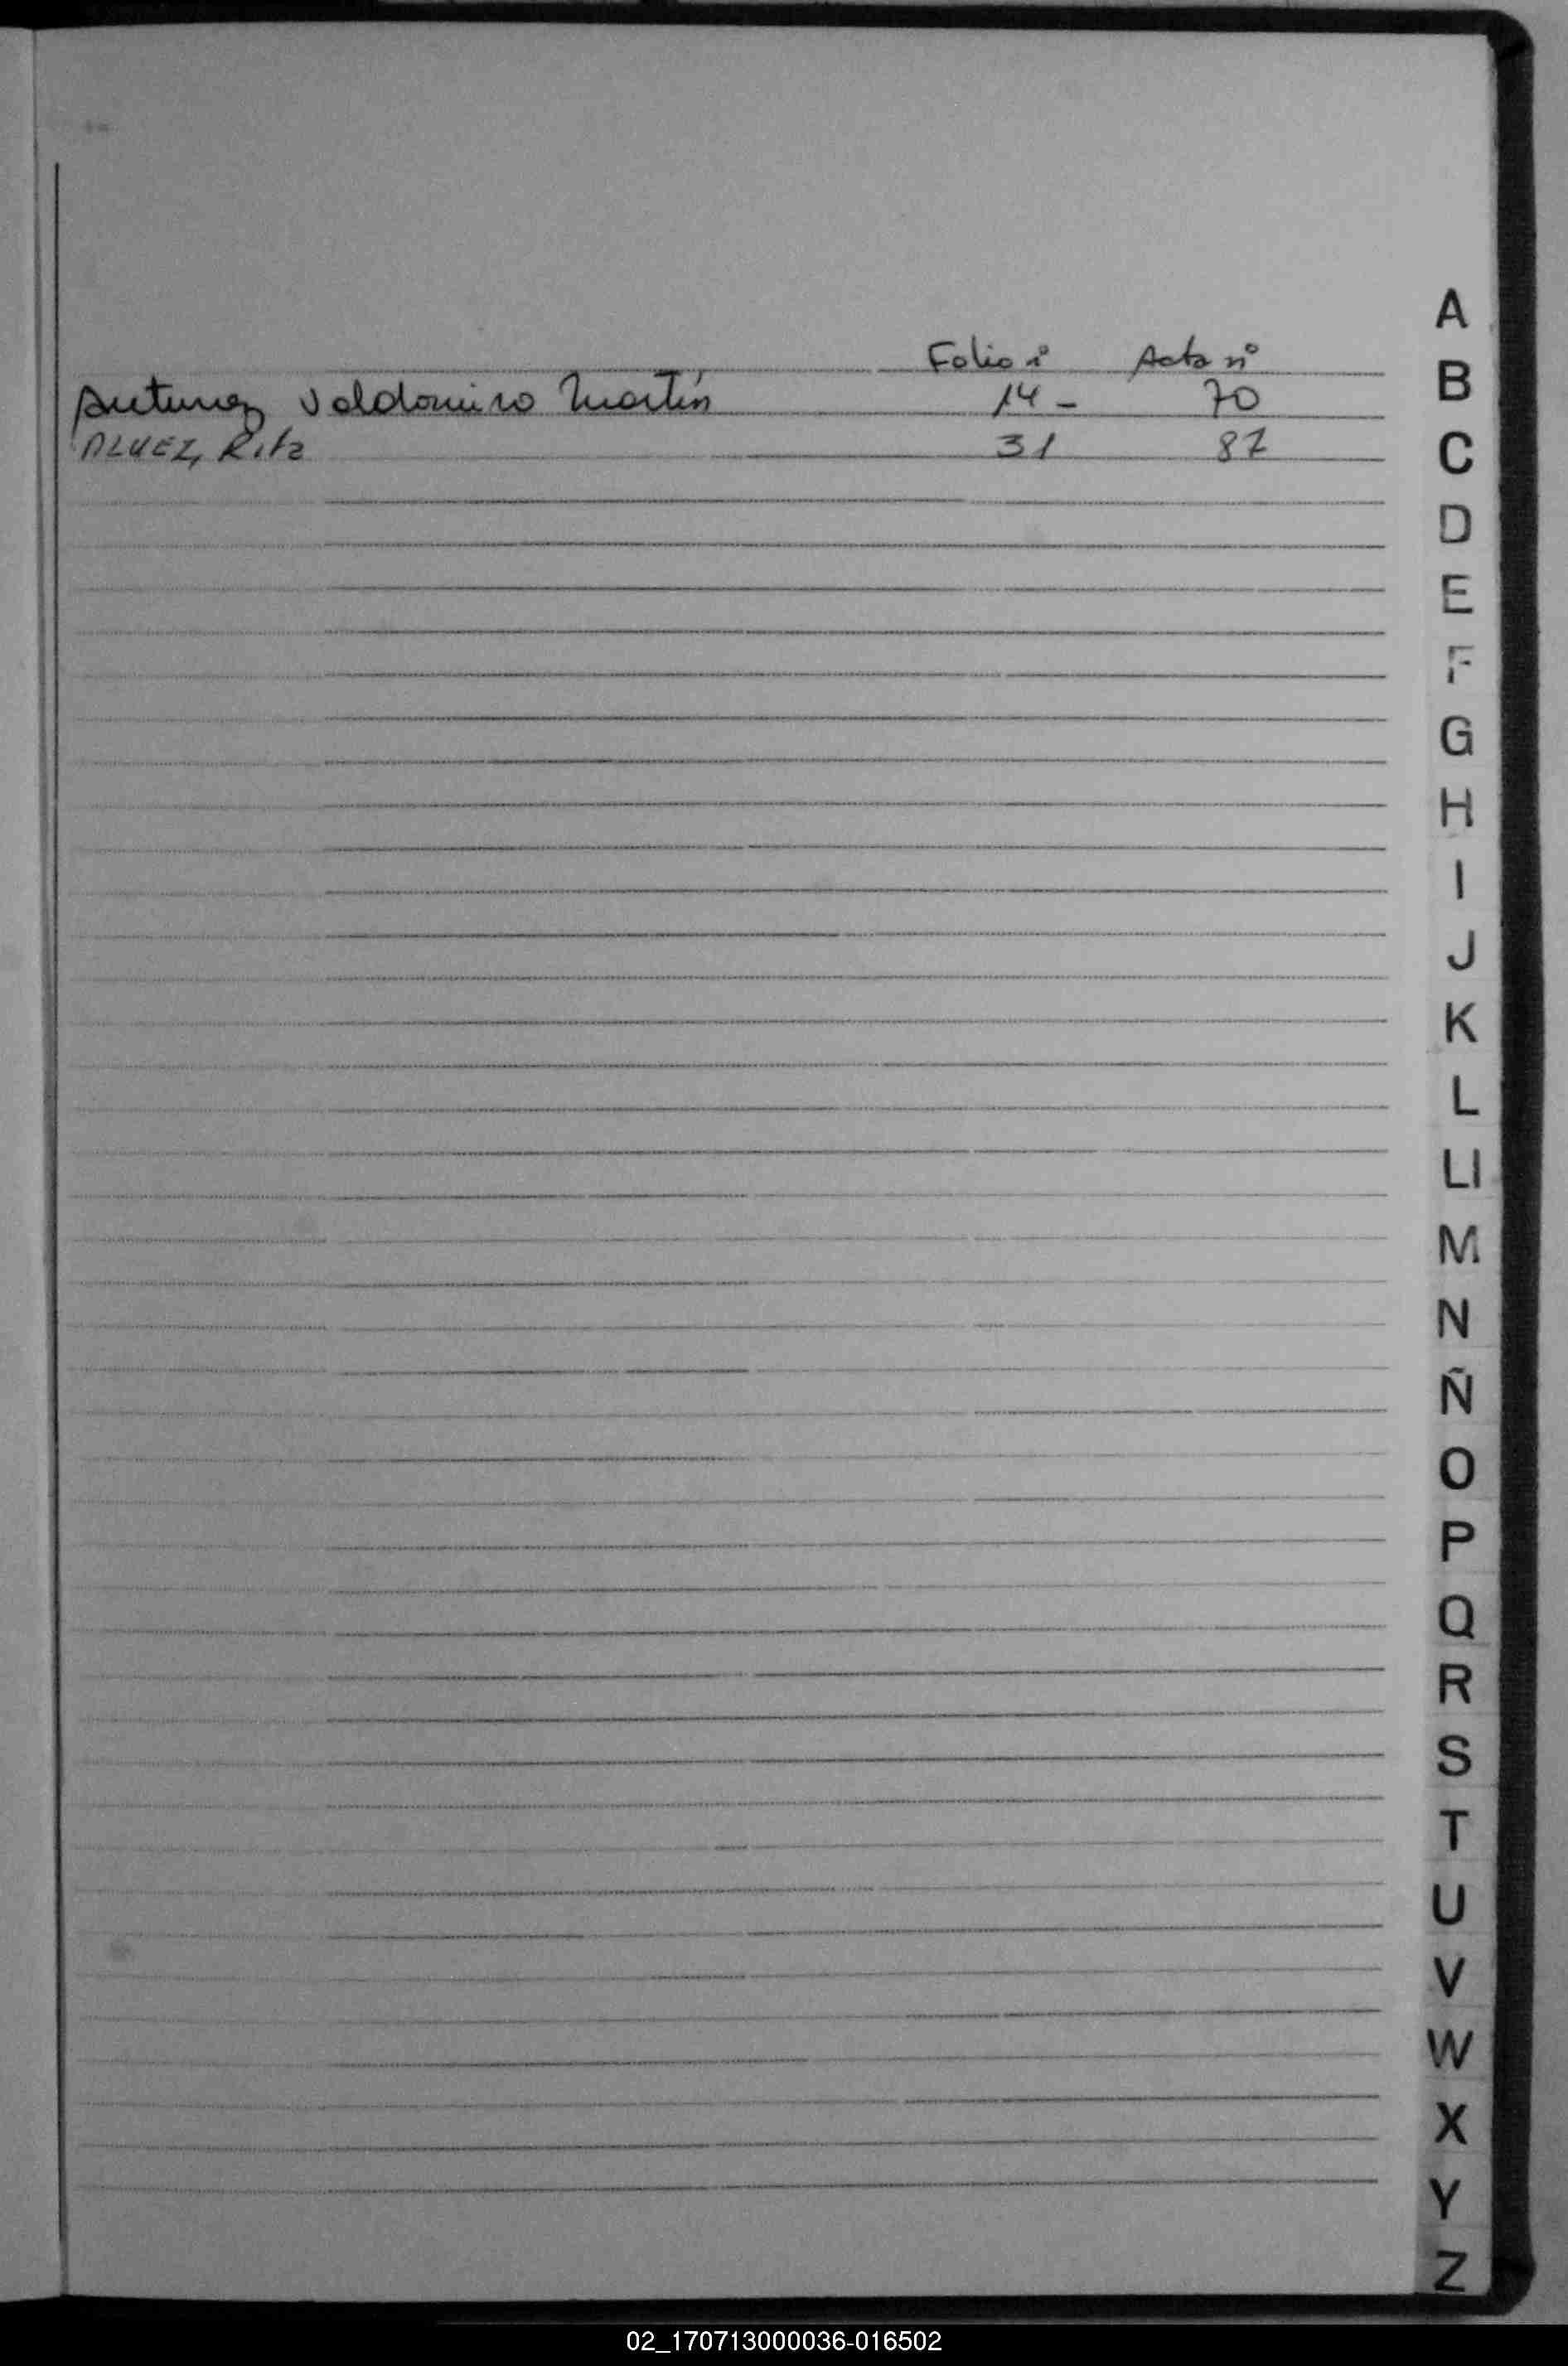 Folio nº Acta nº
Antunez Valdomiro Martín 14 - 70
ALUEZ, Rita 31 87
A
B
C
D
E
F
G
H
I
J
K
L
Ll
M
N
Ñ
O
P
Q
R
S
T
U
V
W
X
Y
Z
02_170713000036-016502